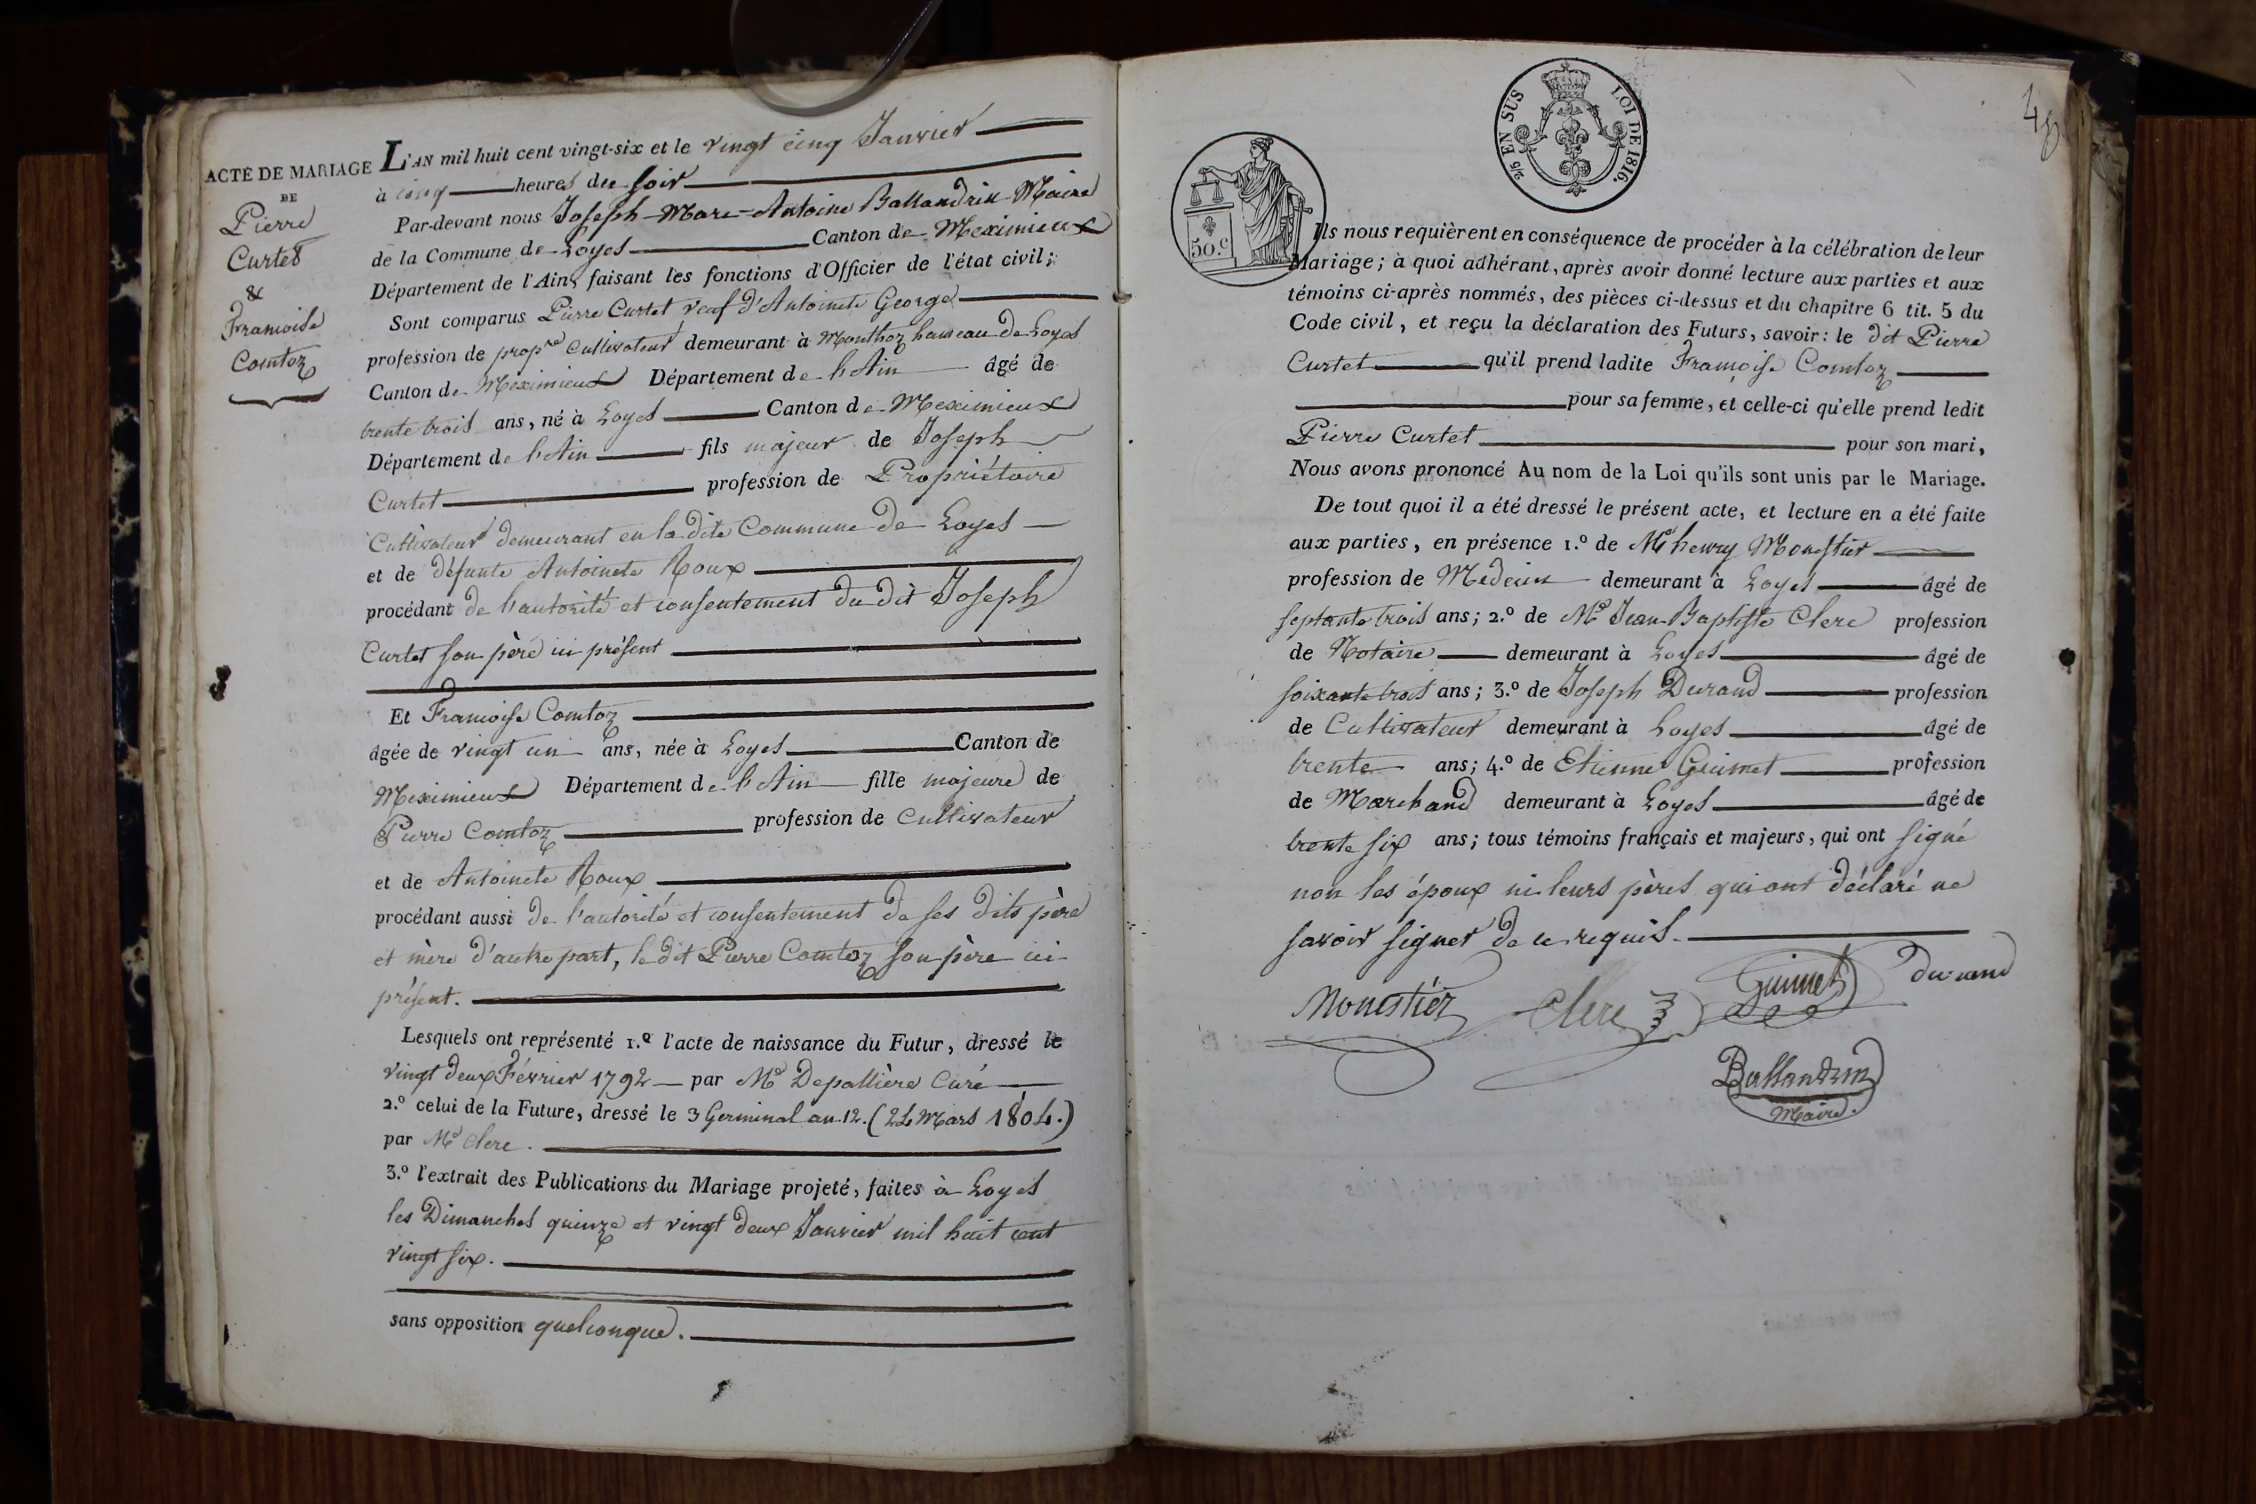 ACTE DE MARIAGE
DE
Pierre
Curtet
&
Francoise
Comtoz
L'AN mil huit cent vingt-six et le vingt cinq Janvier
à cinq heures du soir
Par-devant nous Joseph-Marc-Antoine Ballandrin Maire
de la Commune de Loyes Canton de Meximieux
Département de l'Ain, faisant les fonctions d'Officier de l'état civil;
Sont comparus Pierre Curtet veuf d'Antoinete George
profession de propre Cultivateur demeurant à Monthoz hameau de Loyes
Canton de Meximieux Département de l'Ain âgé de
trente trois ans, né à Loyes Canton de Meximieux
Département de l'Ain fils majeur de Joseph
Curtet profession de Propriétaire
Cultivateur demeurant en la dite Commune de Loyes
et de défunte Antoinete Roux
procédant de l'autorité et consentement du dit Joseph
Curtet son père ici présent
Et Francoise Comtoz
âgée de vingt un ans, née à Loyes Canton de
Meximieux Département de l'Ain fille majeure de
Pierre Comtoz profession de Cultivateur
et de Antoinete Roux
procédant aussi de l'autorité et consentement de ses dits père
et mère d'autre part, le dit Pierre Comtoz son père ici
présent.
Lesquels ont représenté 1.º l'acte de naissance du Futur, dressé le
vingt deux Février 1792 par Mr Depallière Curé
2.º celui de la Future, dressé le 3 Germinal an 12. (24 Mars 1804.)
par Mr Clerc.
3.º l'extrait des Publications du Mariage projeté, faites à Loyes
les Dimanches quinze et vingt deux Janvier mil huit cent
vingt six.
sans opposition quelconque.
48
2/5 EN SUS LOI DE 1816.
50.c
Ils nous requièrent en conséquence de procéder à la célébration de leur
Mariage; à quoi adhérant, après avoir donné lecture aux parties et aux
témoins ci-après nommés, des pièces ci-dessus et du chapitre 6 tit. 5 du
Code civil, et reçu la déclaration des Futurs, savoir: le dit Pierre
Curtet qu'il prend ladite Françoise Comtoz
pour sa femme, et celle-ci qu'elle prend ledit
Pierre Curtet pour son mari,
Nous avons prononcé Au nom de la Loi qu'ils sont unis par le Mariage.
De tout quoi il a été dressé le présent acte, et lecture en a été faite
aux parties, en présence 1.º de Mr henry Monestier
profession de Medecin demeurant à Loyes âgé de
septante trois ans; 2.º de Mr Jean-Baptiste Clerc profession
de Notaire demeurant à Loyes âgé de
soixante trois ans; 3.º de Joseph Durand profession
de Cultivateur demeurant à Loyes âgé de
trente ans; 4.º de Etienne Guimet profession
de Marchand demeurant à Loyes âgé de
trente six ans; tous témoins français et majeurs, qui ont signé
non les époux ni leurs pères qui ont déclaré ne
savoir signer de ce requis.
Monestier Clerc Guimet durand
Ballandrin
Maire.